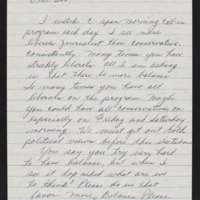 Dear Sir,
I watch C-span morning call-in
program each day. I see more
liberal journalist than conservative.
Consistantly. Many times you have
strickly liberals. All I am asking
is that there be more balance.
To many times you have all
liberals on the program. Maybe
you could have all conservatives on
especially on Friday and Saturday
morning. We must get out both
political views before this
You say you try very hard
to have balance, but when I
see it lop sided what are we
to think? Please do us that
favor. More, Balance Please.